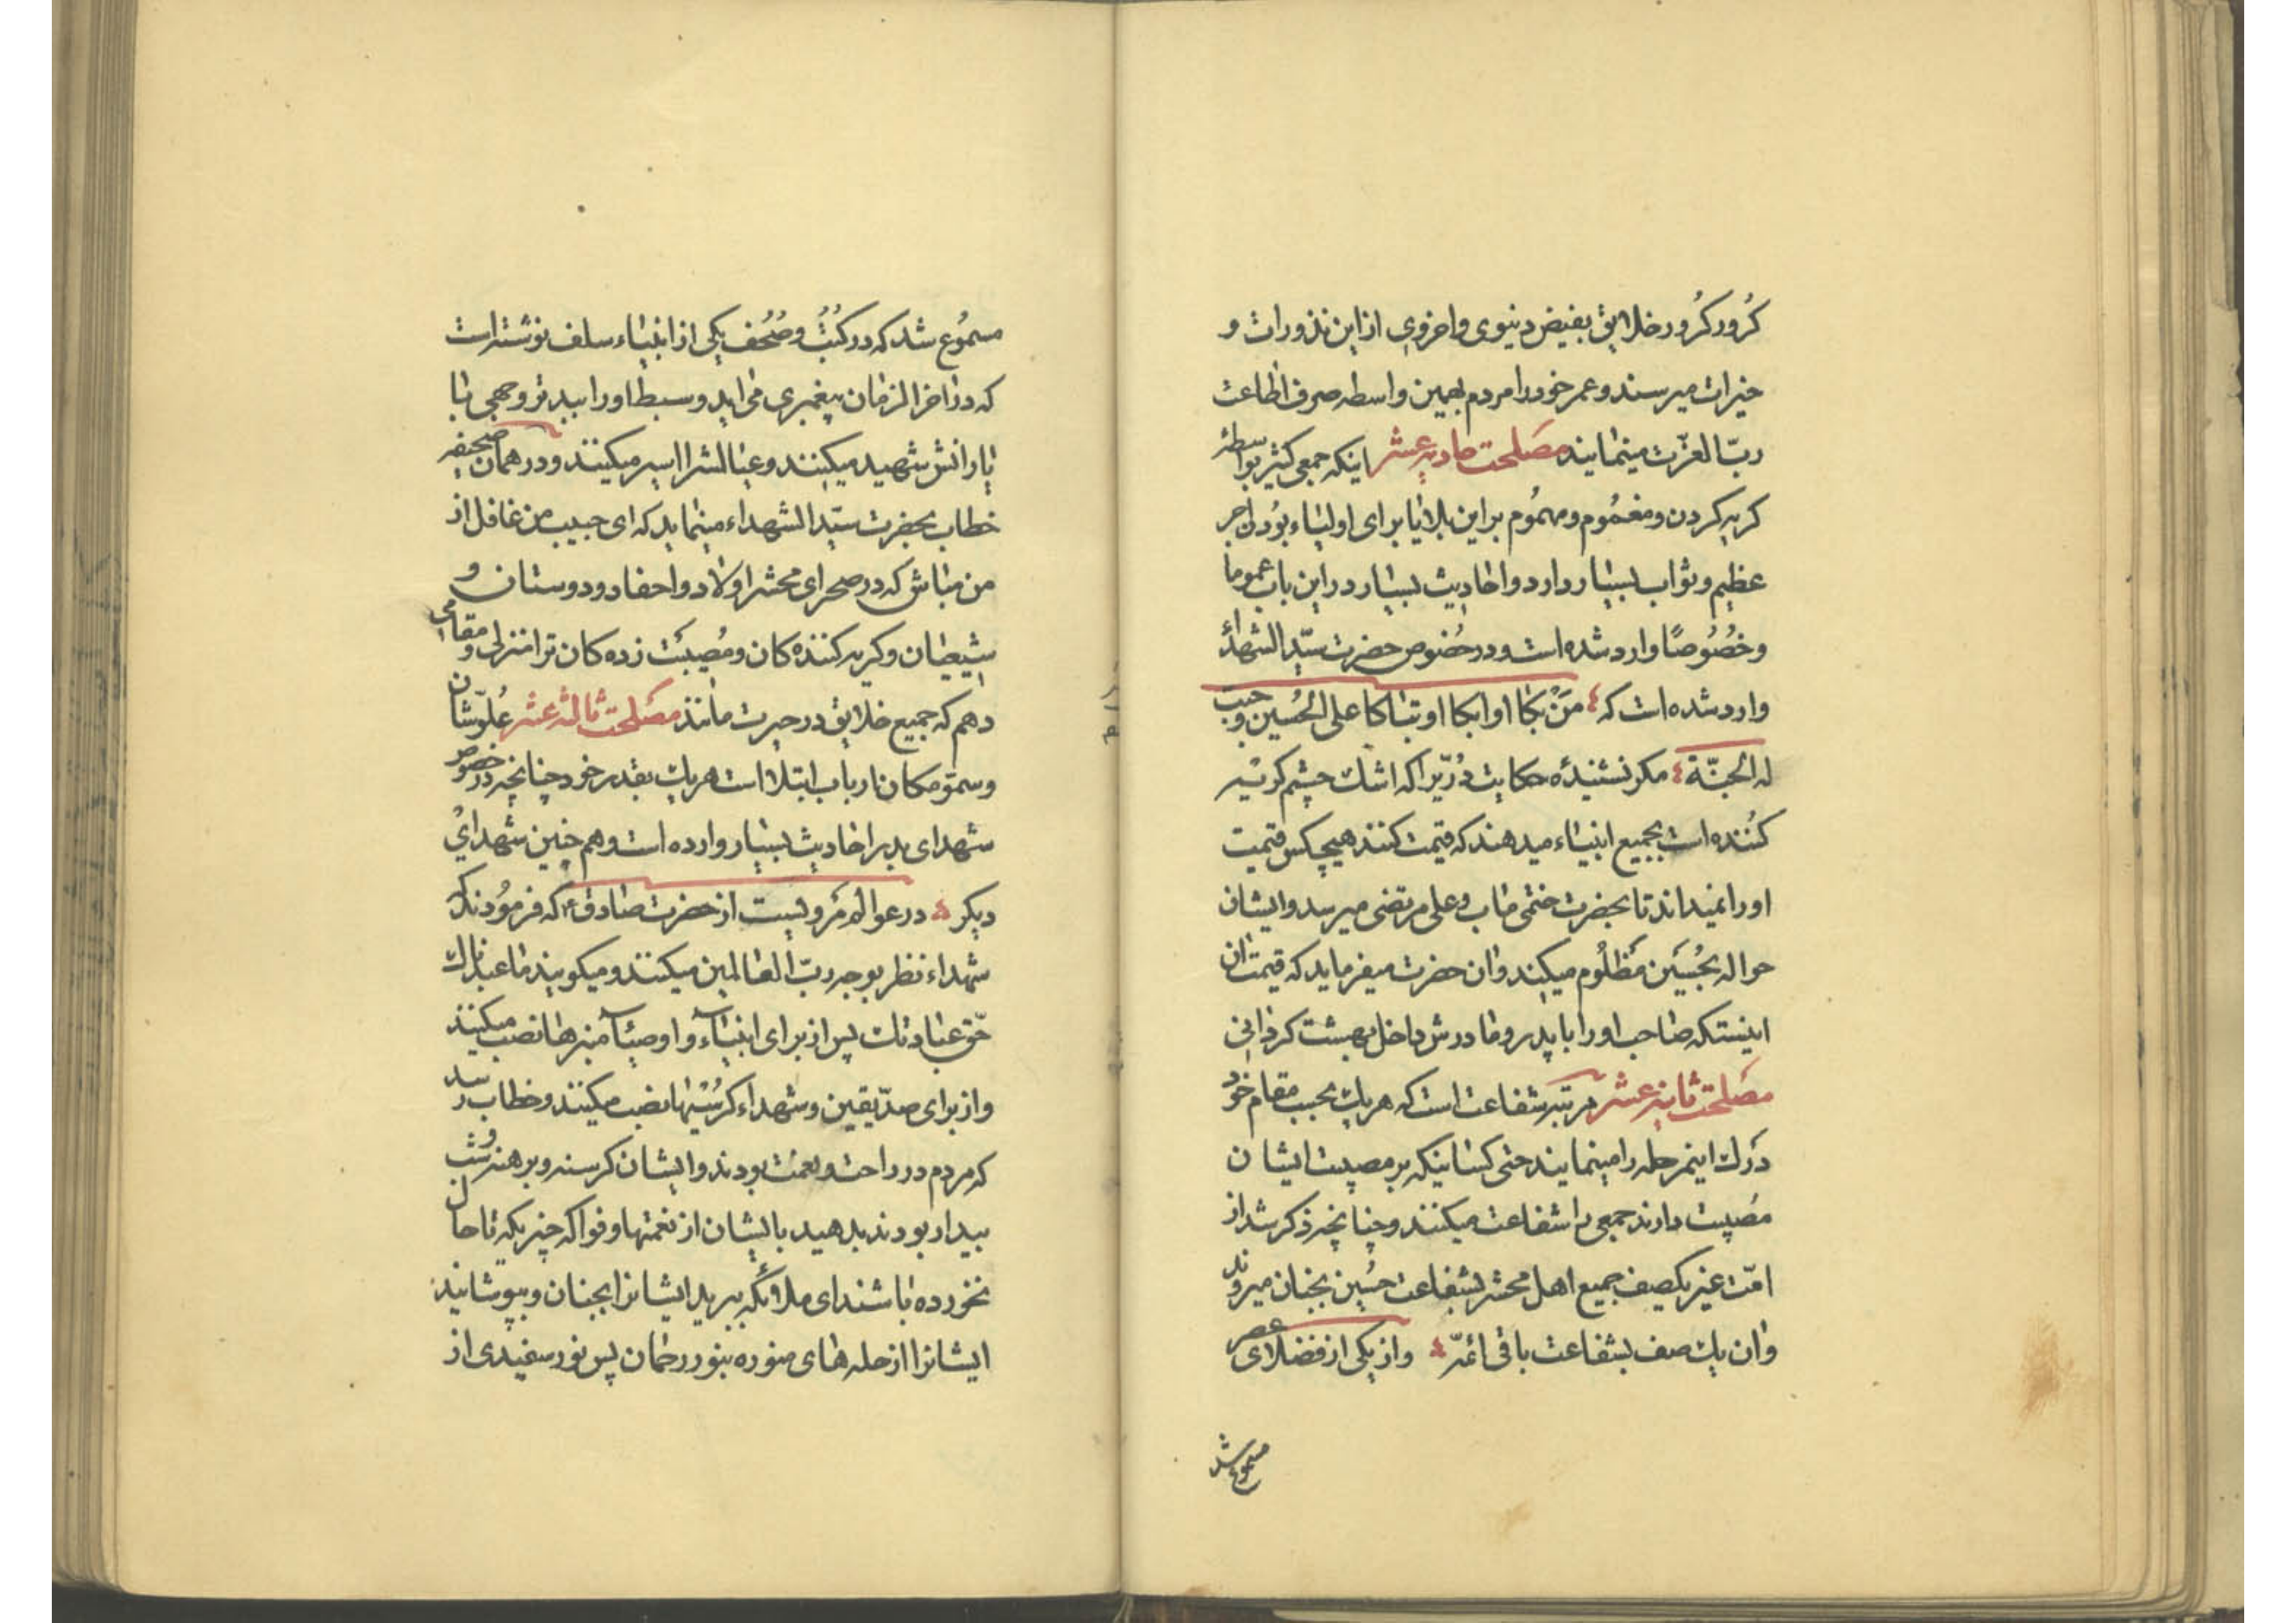 کُرُور کُرُور خلایق بفیض دنیوی و اخروی از این نذورات و
خیرات میرسند و عمر خود را مردم بهمین واسطه صرف اطاعت
ربّ العزّت مینمایند مصلحت حادیه عشر اینکه جمعی کثیر بواسطهٔ
کریه کردن و مغموُم و مهموُم بر این بلایا برای اولیاء بوُدن اجر
عظیم و ثواب بسیار دارد و احادیث بسیار در این باب عموما
و خُصُوصًا وارد شده است و در خُصُوص حضرت سیّد الشهدآء
وارد شده است که مَنْ بَکا او ابکا او تباکا علی الحُسین وجبت
له الجنّة مکر نشنیدهٔ حکایت دُرّیرا که اشک چشم کریّه
کُننده است بجمیع انبیاء میدهند که قیمت کنند هیچکس قیمت
او را نمیداند تا بحضرت ختمی ماب و علی مرتضی میرسد و ایشان
حواله بحُسَین مَظلُوم میکنند و ان حضرت میفرماید که قیمت ان
اینستکه صاحب او را با پدر و مادرش داخل بهشت کردانی
مصلحت ثانیه عشر مرتبه شفاعت است که هر یک بحسب مقام خود
دَرک اینمرحله را مینمایند حتی کسانیکه بر مصیبت ایشان
مصُیبت دارند جمعی را شفاعت میکنند و چنانچه ذکر شد از
امّت غیر یکصف جمیع اهل محشر بشفاعت حسُین بجنان میروند
و ان یک صف بشفاعت باقی ائمّه و از یکی از فضلای عصر
مسموع شد
مسموُع شد که در کتُبُ و صُحُف یکی از انبیاء سلف نوشته است
که در اخر الزمان پیغمبری می اید و سبط او را ببدترو جهی با
یارانش شهید میکنند و عیالش را اسیر میکنند و در همان صحیفه
خطاب بحضرت سیّد الشهداء مینماید که ای حبیب من غافل از
من مباش که در صحرای محشر اولاد و احفاد و دوستان و
شیعیان و کریه کننده کان و مُصیبَت زده کان ترا منزلی و مقامی
دهم که جمیع خلایق در حیرت مانند مصلحت ثالثه عشر عُلوّ شان
و سموّ مکان ارباب ابتلا است هر یک بقدر خود چنانچه در خصوص
شهدای بدر احادیث بسیار وارده است و هم چنین شهدای
دیکر در عوالم مَرویست از حضرت صادق ع که فرموُدند که
شهداء نظر بوجه ربّ العالمین میکنند و میکویند ما عبدناک
حّق عبادتک پس از برای انبیآء و اوصیآ منبرها نصب میکنند
و از برای صدّیقین و شهداء کرسُیّها نصب میکنند و خطاب رسد
که مردم در راحت و نعمت بودند و ایشان کرسنه و برهنه و شب
بیدار بودند بدهید بایشان از نعمتها و فواکه چیزیکه تا حال
نخورده باشند ای ملائکه ببرید ایشانرا بجنان و بپوشانید
ایشانرا از حله های منوره بنور رحمان پس نور سفیدی از